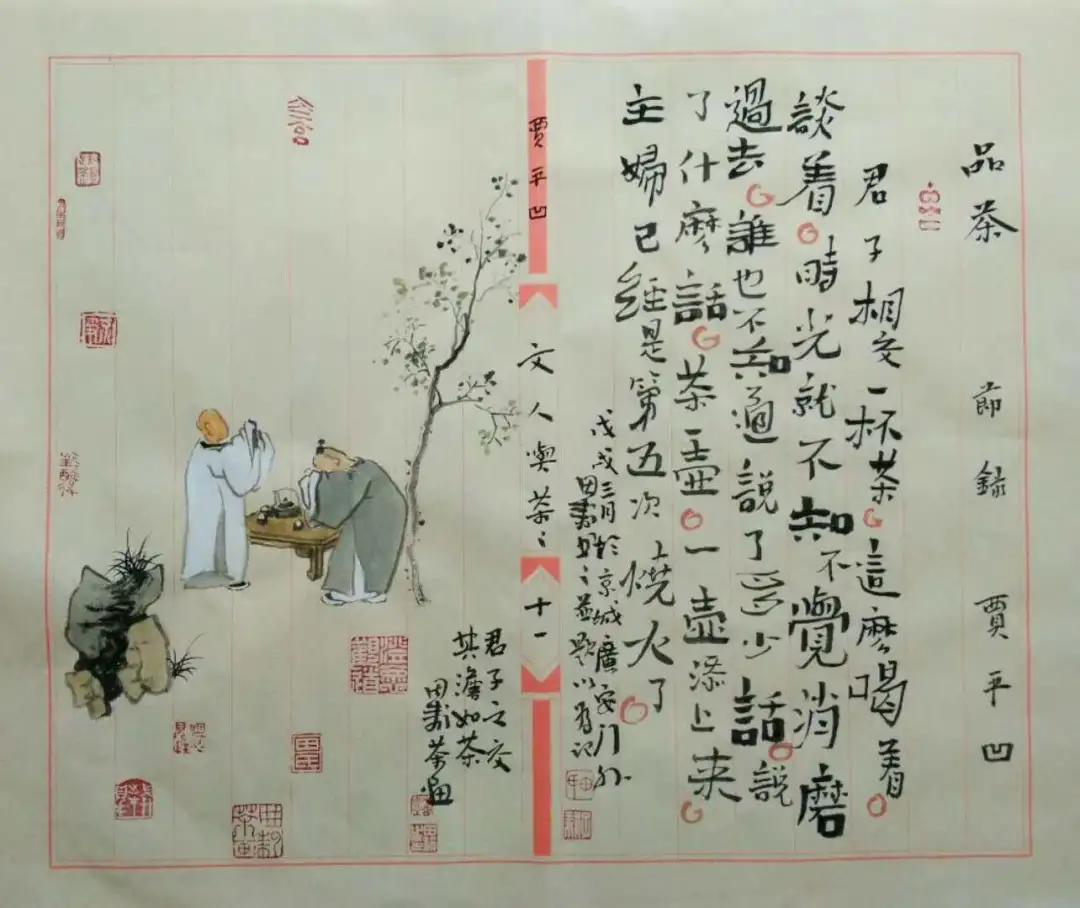 品茶 節録 賈平凹
君子相交一杯茶。這麽喝着。
談着。時光就不知不覺消磨
過去。誰也不知道說了多少話。說
了什麽話。茶一壺。一壺添上来。
主婦已經是第五次燒火了。
戊戌三月於京城廣安门外
並題以為記
賈平凹
文人喫茶之
十一
君子之交
其澹如茶